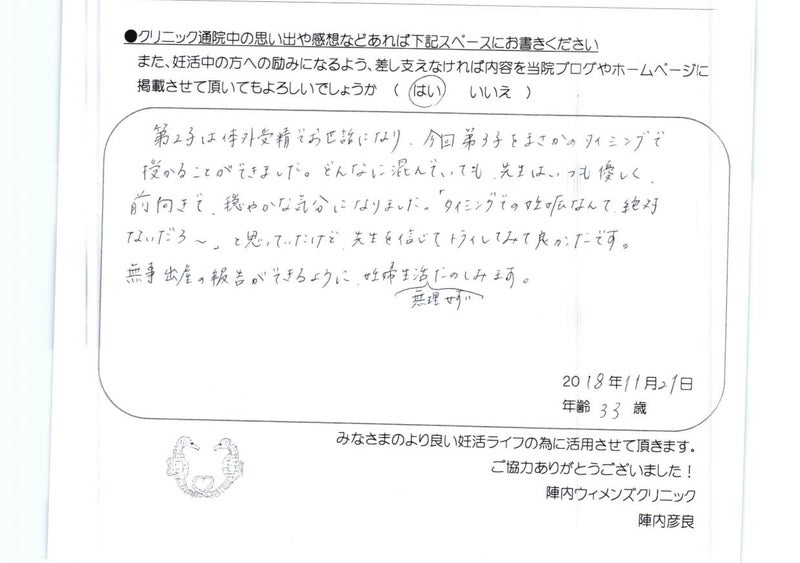 ●クリニック通院中の思い出や感想などあれば下記スペースにお書きください
また、妊活中の方への励みになるよう、差し支えなければ内容を当院ブログやホームページに
掲載させて頂いてもよろしいでしょうか （ はい　いいえ ）
第2子は体外受精でお世話になり、今回第3子をまさかのタイミングで
授かることができました。どんなに混んでいても、先生はいつも優しく、
前向きで、穏やかな気分になりました。「タイミングでの妊娠なんて、絶対
ないだろ～」と思っていたけど、先生を信じてトライしてみて良かったです。
無事出産の報告ができるように、妊婦生活たのしみます。
無理せず
2018年11月21日
年齢 33 歳
みなさまのより良い妊活ライフの為に活用させて頂きます。
ご協力ありがとうございました！
陣内ウィメンズクリニック
陣内彦良